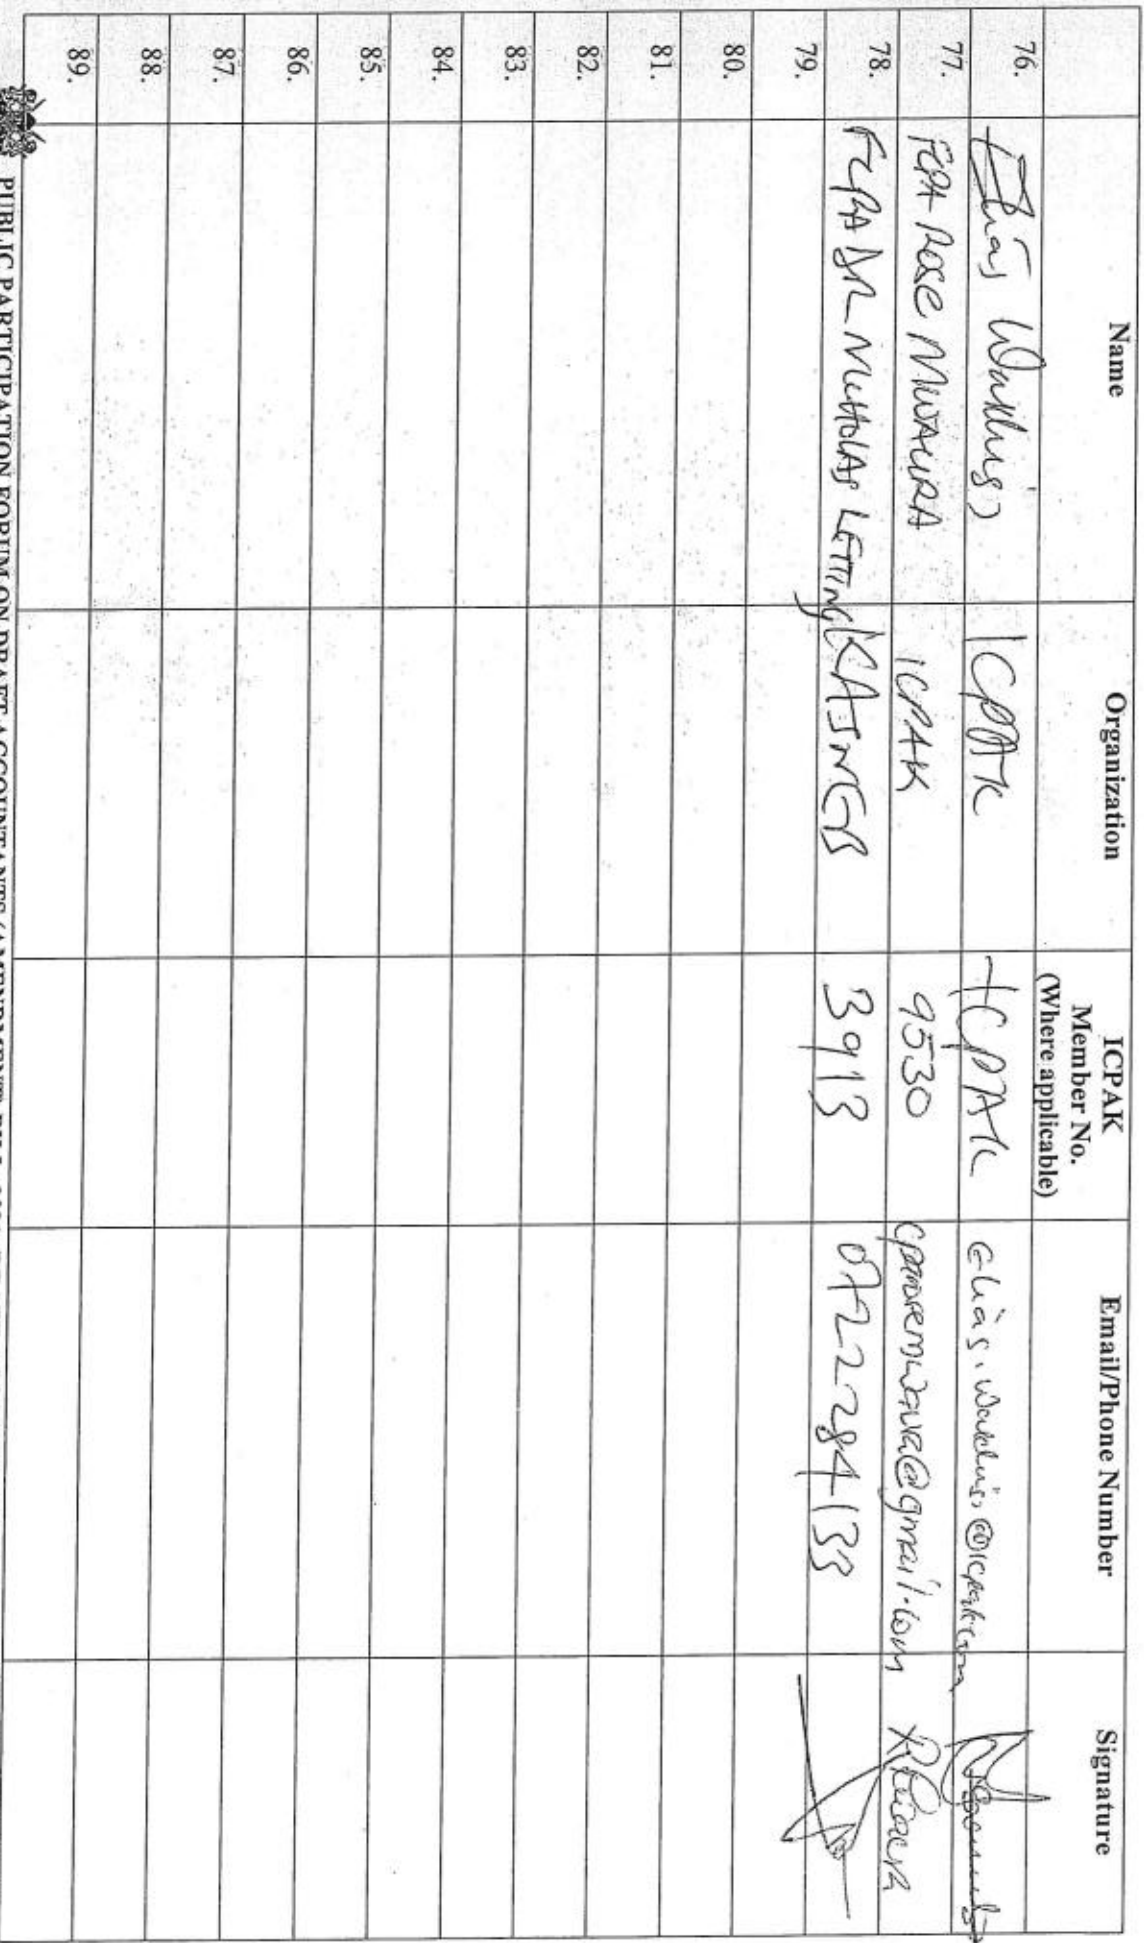 Name Organization ICPAK Member No. (Where applicable) Email/Phone Number Signature
76. Elias Wakhisi ICPAK ICPAK
77. FCPA ROSE MWAURA ICPAK 9530 @gmail.com
78. FCPA DR NICHOLAS LETTING KASNEB 3913 0722284133
79.
80.
81.
82.
83.
84.
85.
86.
87.
88.
89.
PUBLIC PARTICIPATION FORUM ON DRAFT ACCOUNTANTS (AMENDMENT)